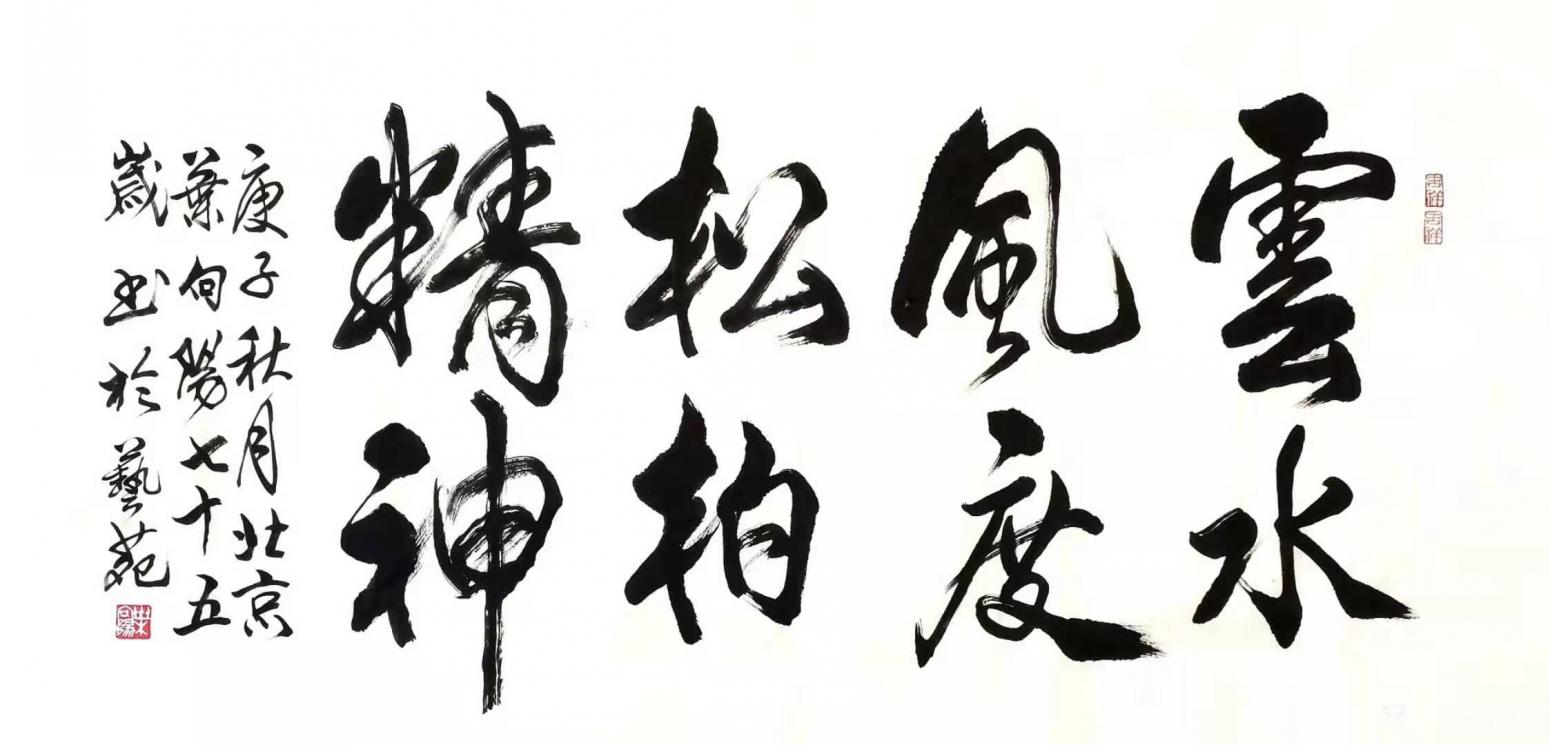 雲水
風度
松柏
精神
庚子秋月北京
葉向陽七十五
歲書於藝苑